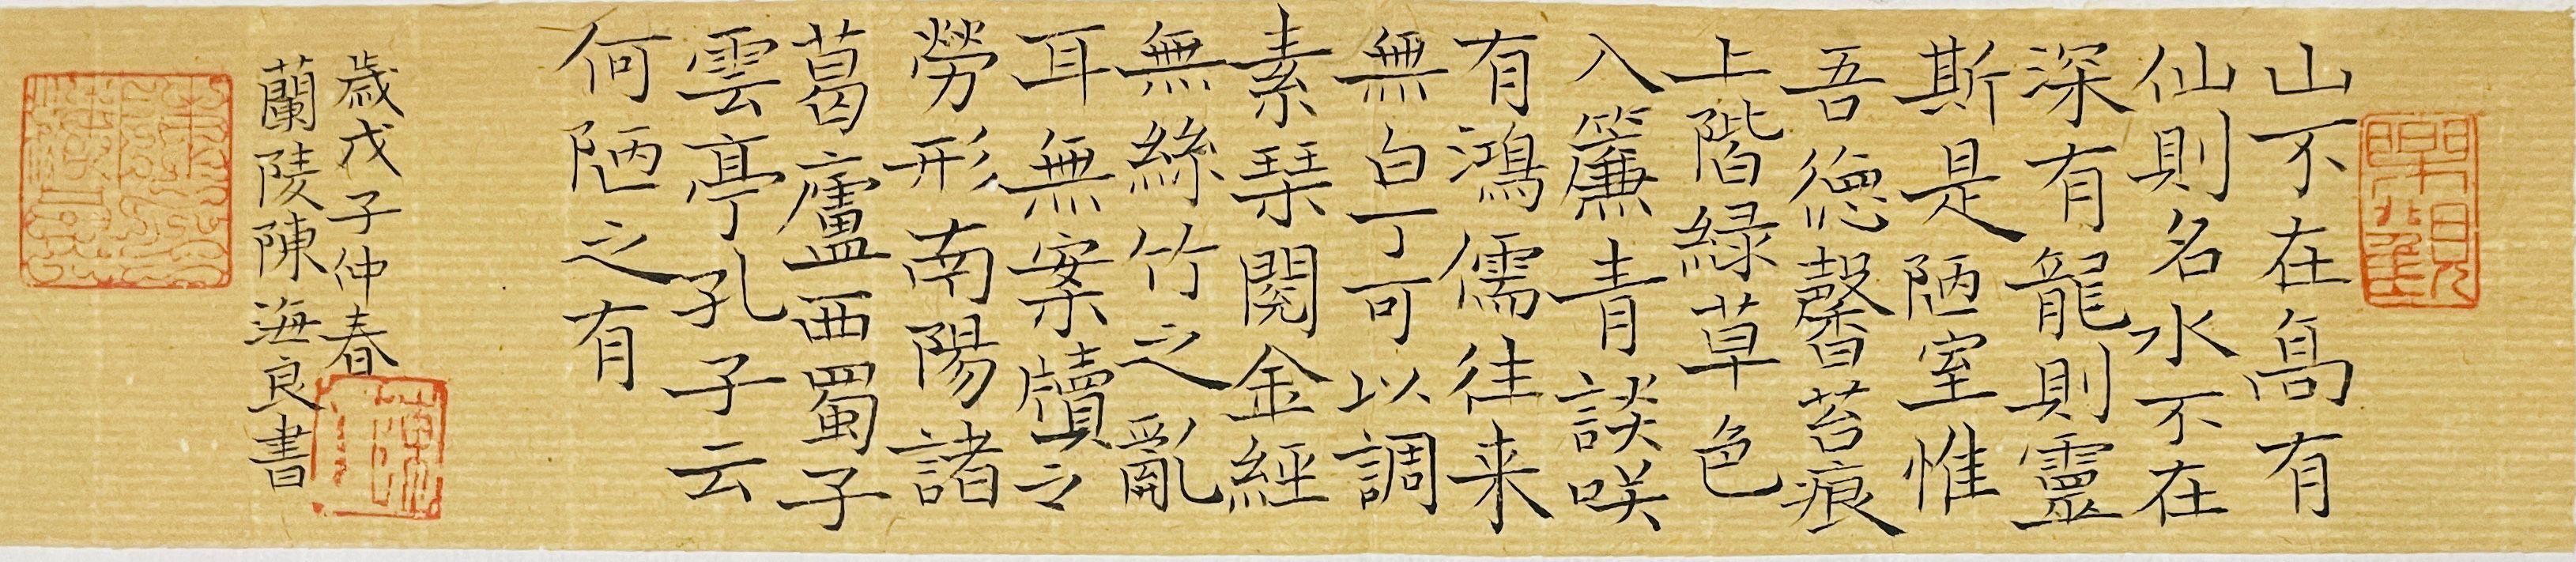 山不在髙有
仙則名水不在
深有龍則靈
斯是陋室惟
吾德馨苔痕
上階緑草色
入簾青談咲
有鴻儒往来
無白丁可以調
素琴閱金經
無絲竹之亂
耳無案牘之
勞形南陽諸
葛廬西蜀子
雲亭孔子云
何陋之有
歲戊子仲春
蘭陵陳海良書